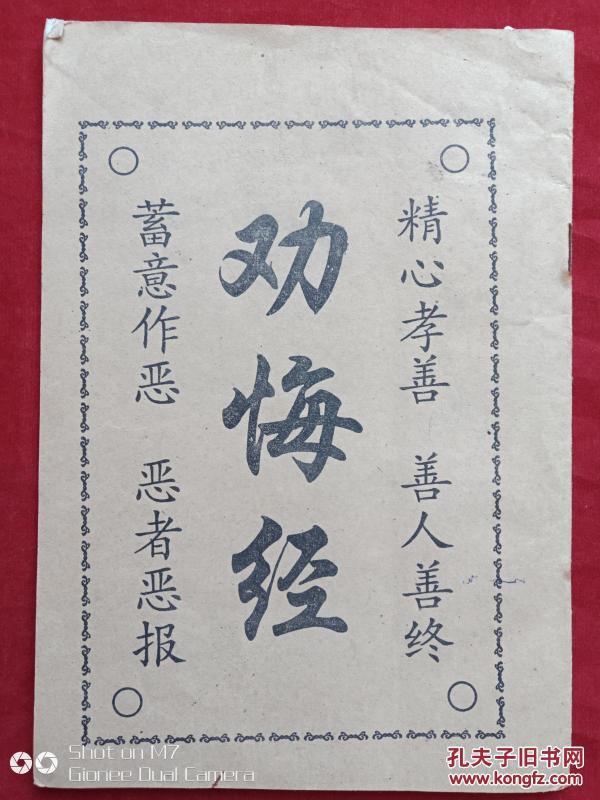 精心孝善 善人善终
劝悔经
蓄意作恶 恶者恶报
Shot on M7
Gionee Dual Camera
孔夫子旧书网
www.kongfz.com